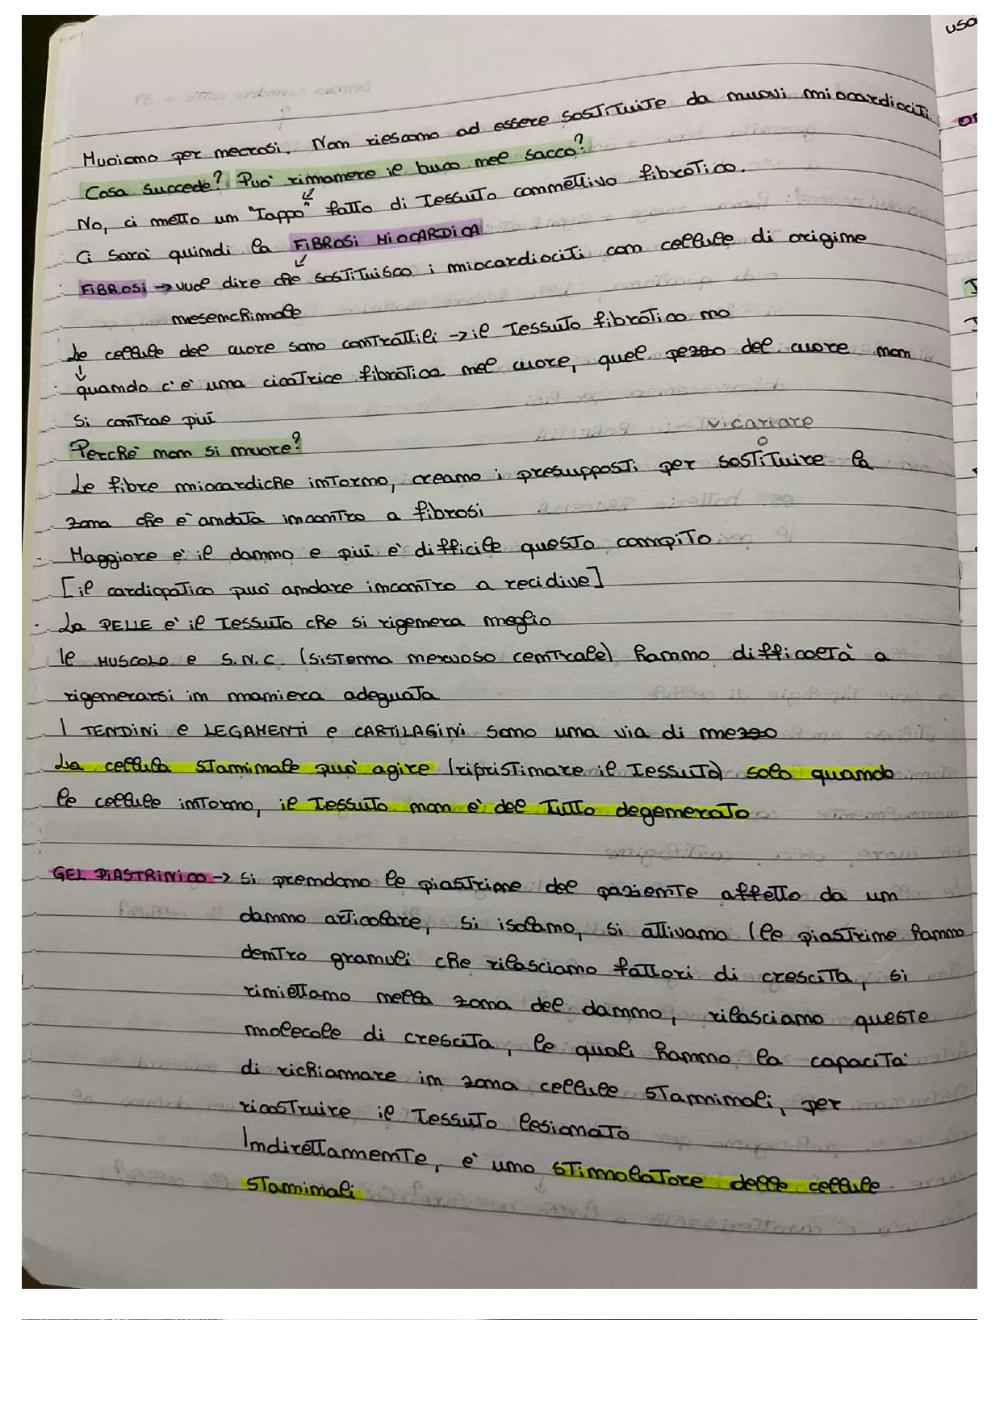 uso
Muoiono per necrosi. Non riescono ad essere sostituite da nuovi miocardiociti
Cosa succede? Può rimanere il buco nel sacco?
No, ci metto un "tappo" fatto di tessuto connettivo fibrotico.
Ci sarà quindi la FIBROSI MIOCARDICA
FIBROSI → vuol dire che sostituisco i miocardiociti con cellule di origine
mesenchimale
Le cellule del cuore sono contrattili → il tessuto fibrotico no
↓
quando c'è una cicatrice fibrotica nel cuore, quel pezzo del cuore non
si contrae più
Perché non si muore?
vicariare
o
Le fibre miocardiche intorno, creano i presupposti per sostituire la
zona che è andata incontro a fibrosi
Maggiore è il danno e più è difficile questo compito
[il cardiopatico può andare incontro a recidive]
- La PELLE è il tessuto che si rigenera meglio
Il MUSCOLO e S.N.C. (sistema nervoso centrale) hanno difficoltà a
rigenerarsi in maniera adeguata
I TENDINI e LEGAMENTI e CARTILAGINI sono una via di mezzo
La cellula staminale può agire (ripristinare il tessuto) solo quando
le cellule intorno, il tessuto non è del tutto degenerato
GEL PIASTRINICO → si prendono le piastrine del paziente affetto da un
danno articolare, si isolano, si attivano (le piastrine hanno
dentro granuli che rilasciano fattori di crescita, si
rimettono nella zona del danno, rilasciano queste
molecole di crescita, le quali hanno la capacità
di richiamare in zona cellule staminali, per
ricostruire il tessuto lesionato
Indirettamente, è uno stimolatore delle cellule
staminali